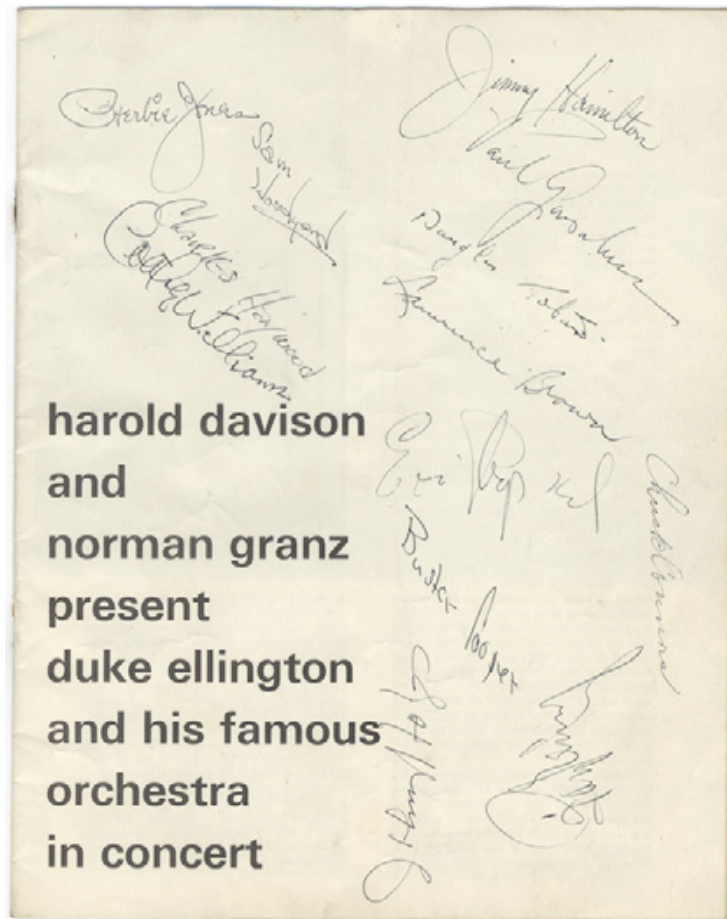 Herbie Jones
Sam
Woodyard
Charles Haywood
Cottie Williams
Jimmy Hamilton
Paul Gonsalves
Lawrence Brown
Buster Cooper
Chuck Connors
harold davison
and
norman granz
present
duke ellington
and his famous
orchestra
in concert